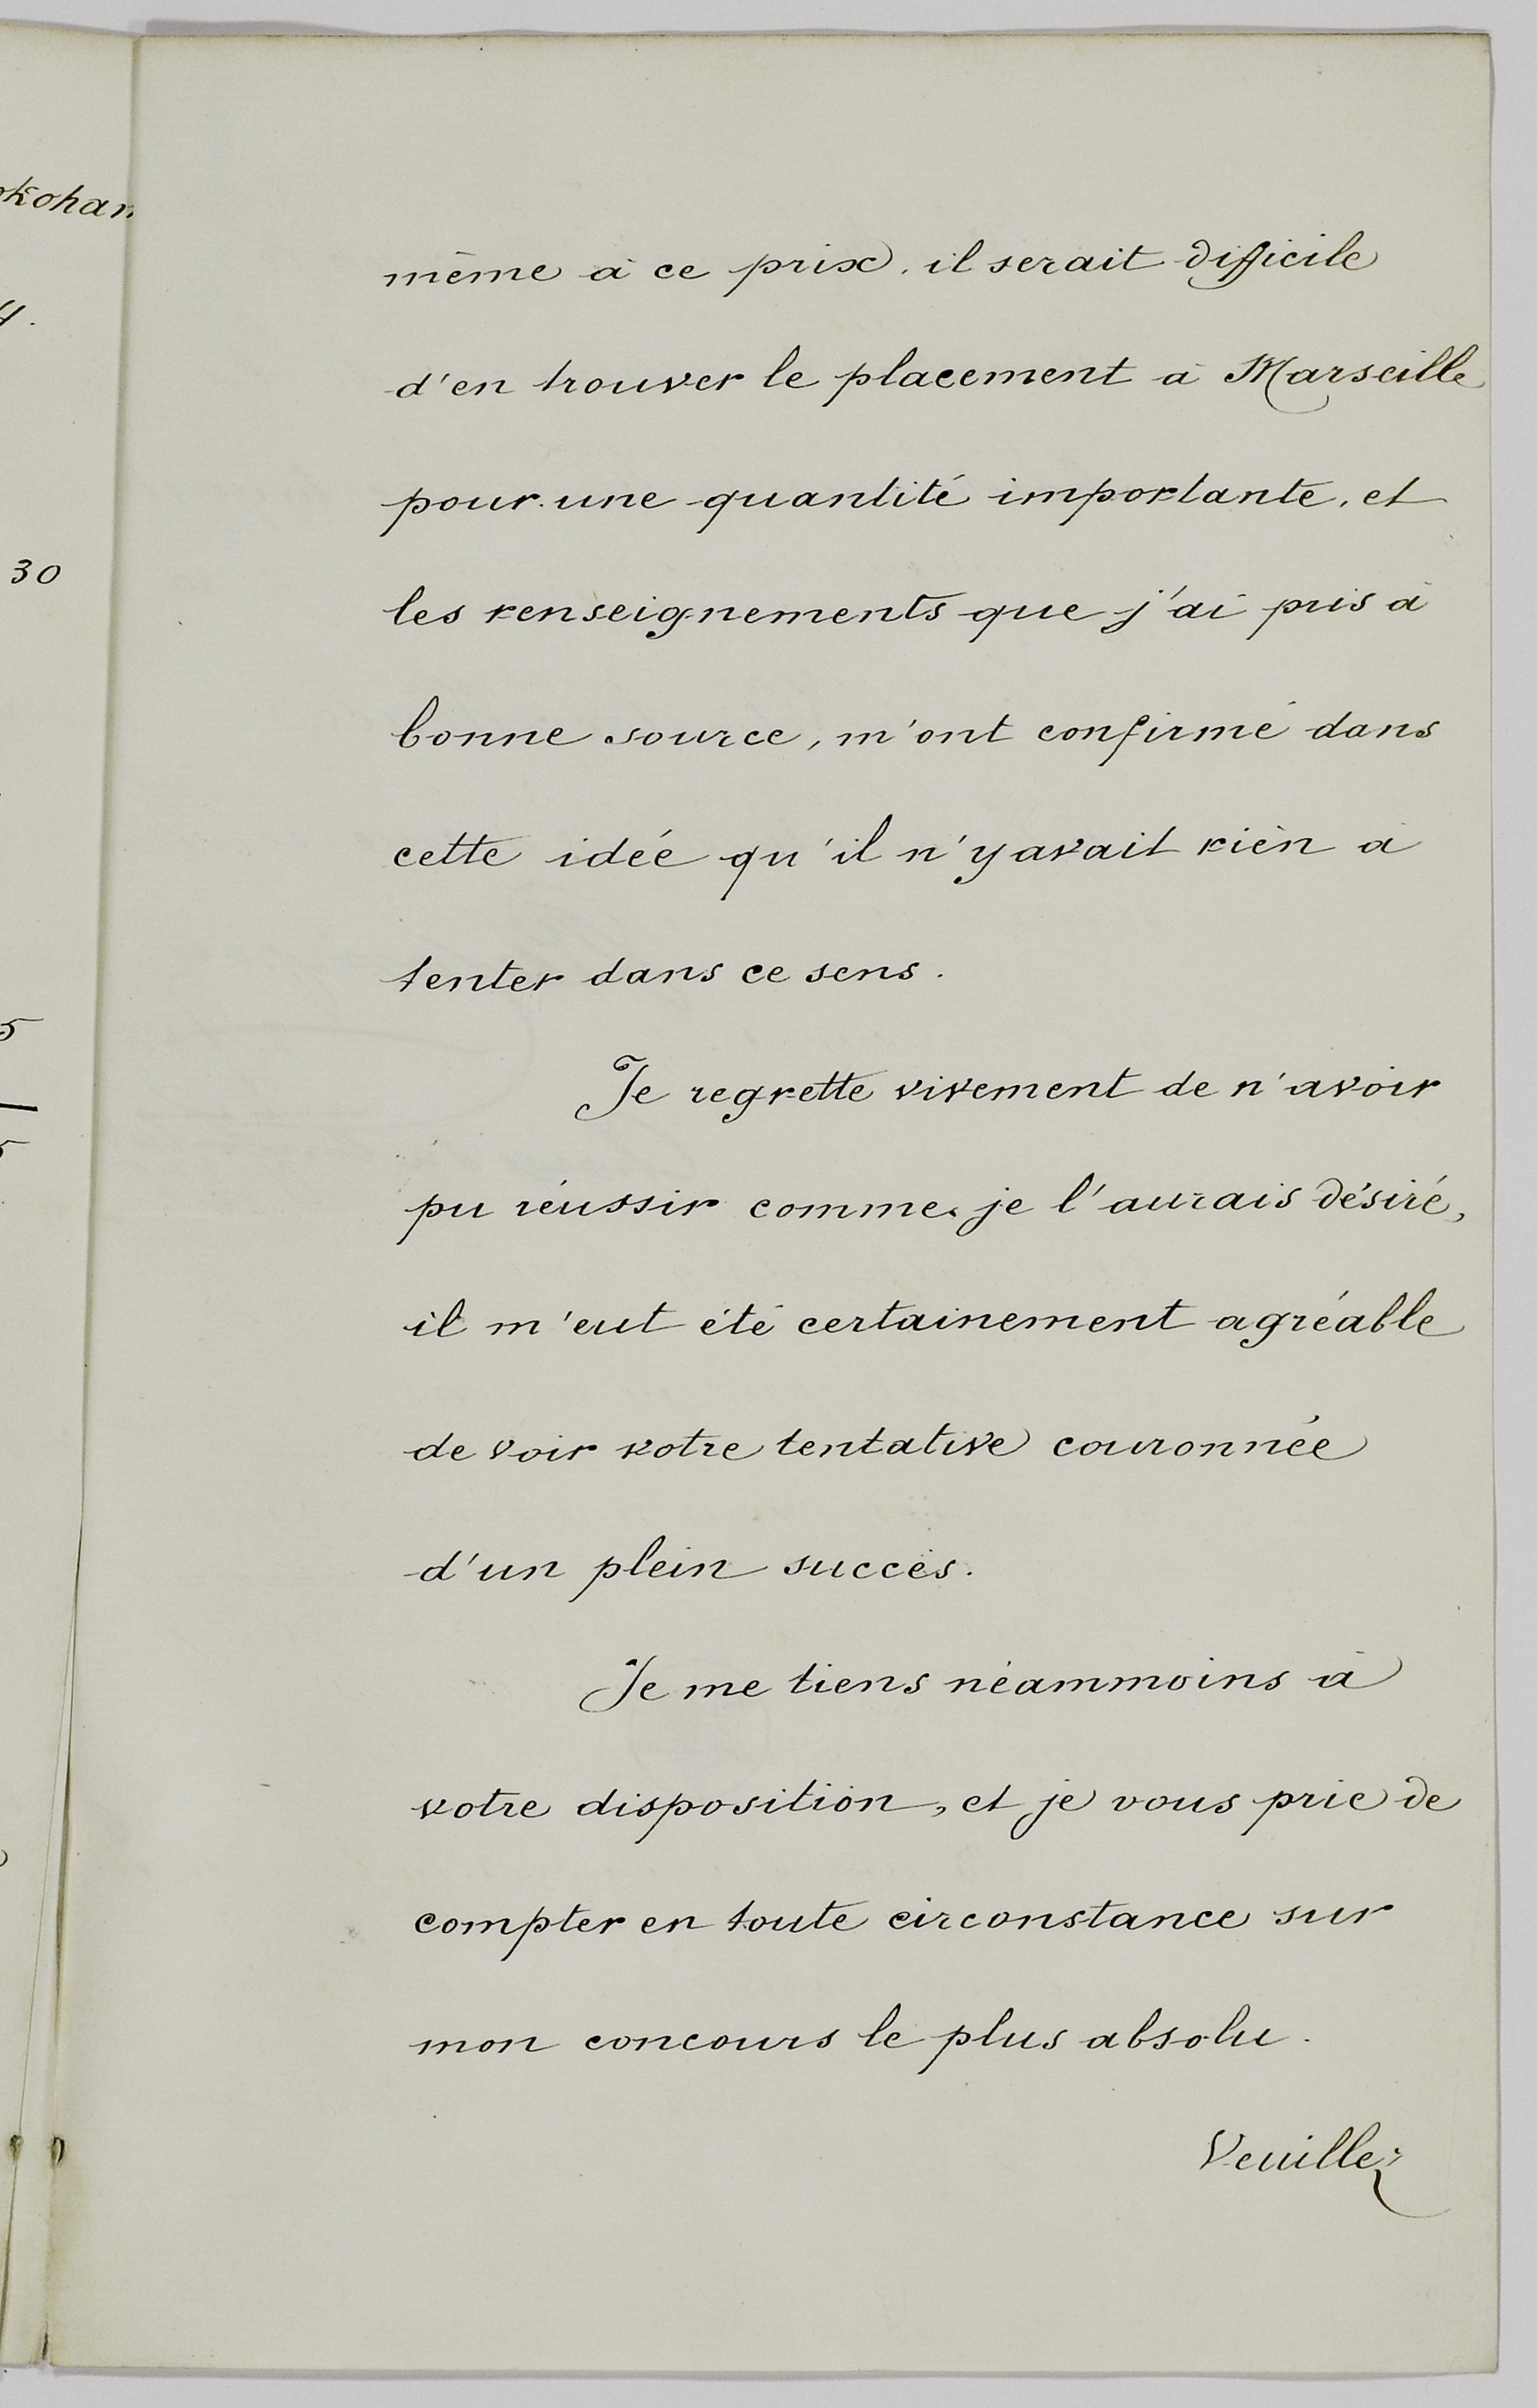 même à ce prix, il serait difficile
d'en trouver le placement à Marseille
pour une quantité importante, et
les renseignements que j'ai pris à
bonne source, m'ont confirmé dans
cette idée qu'il n'y avait rien à
tenter dans ce sens.
Je regrette vivement de n'avoir
pu réussir comme je l'aurais désiré,
il m'eut été certainement agréable
de voir votre tentative couronnée
d'un plein succès.
Je me tiens néammoins à
votre disposition, et je vous prie de
compter en toute circonstance sur
mon concours le plus absolu.
Veuillez
30
5
5